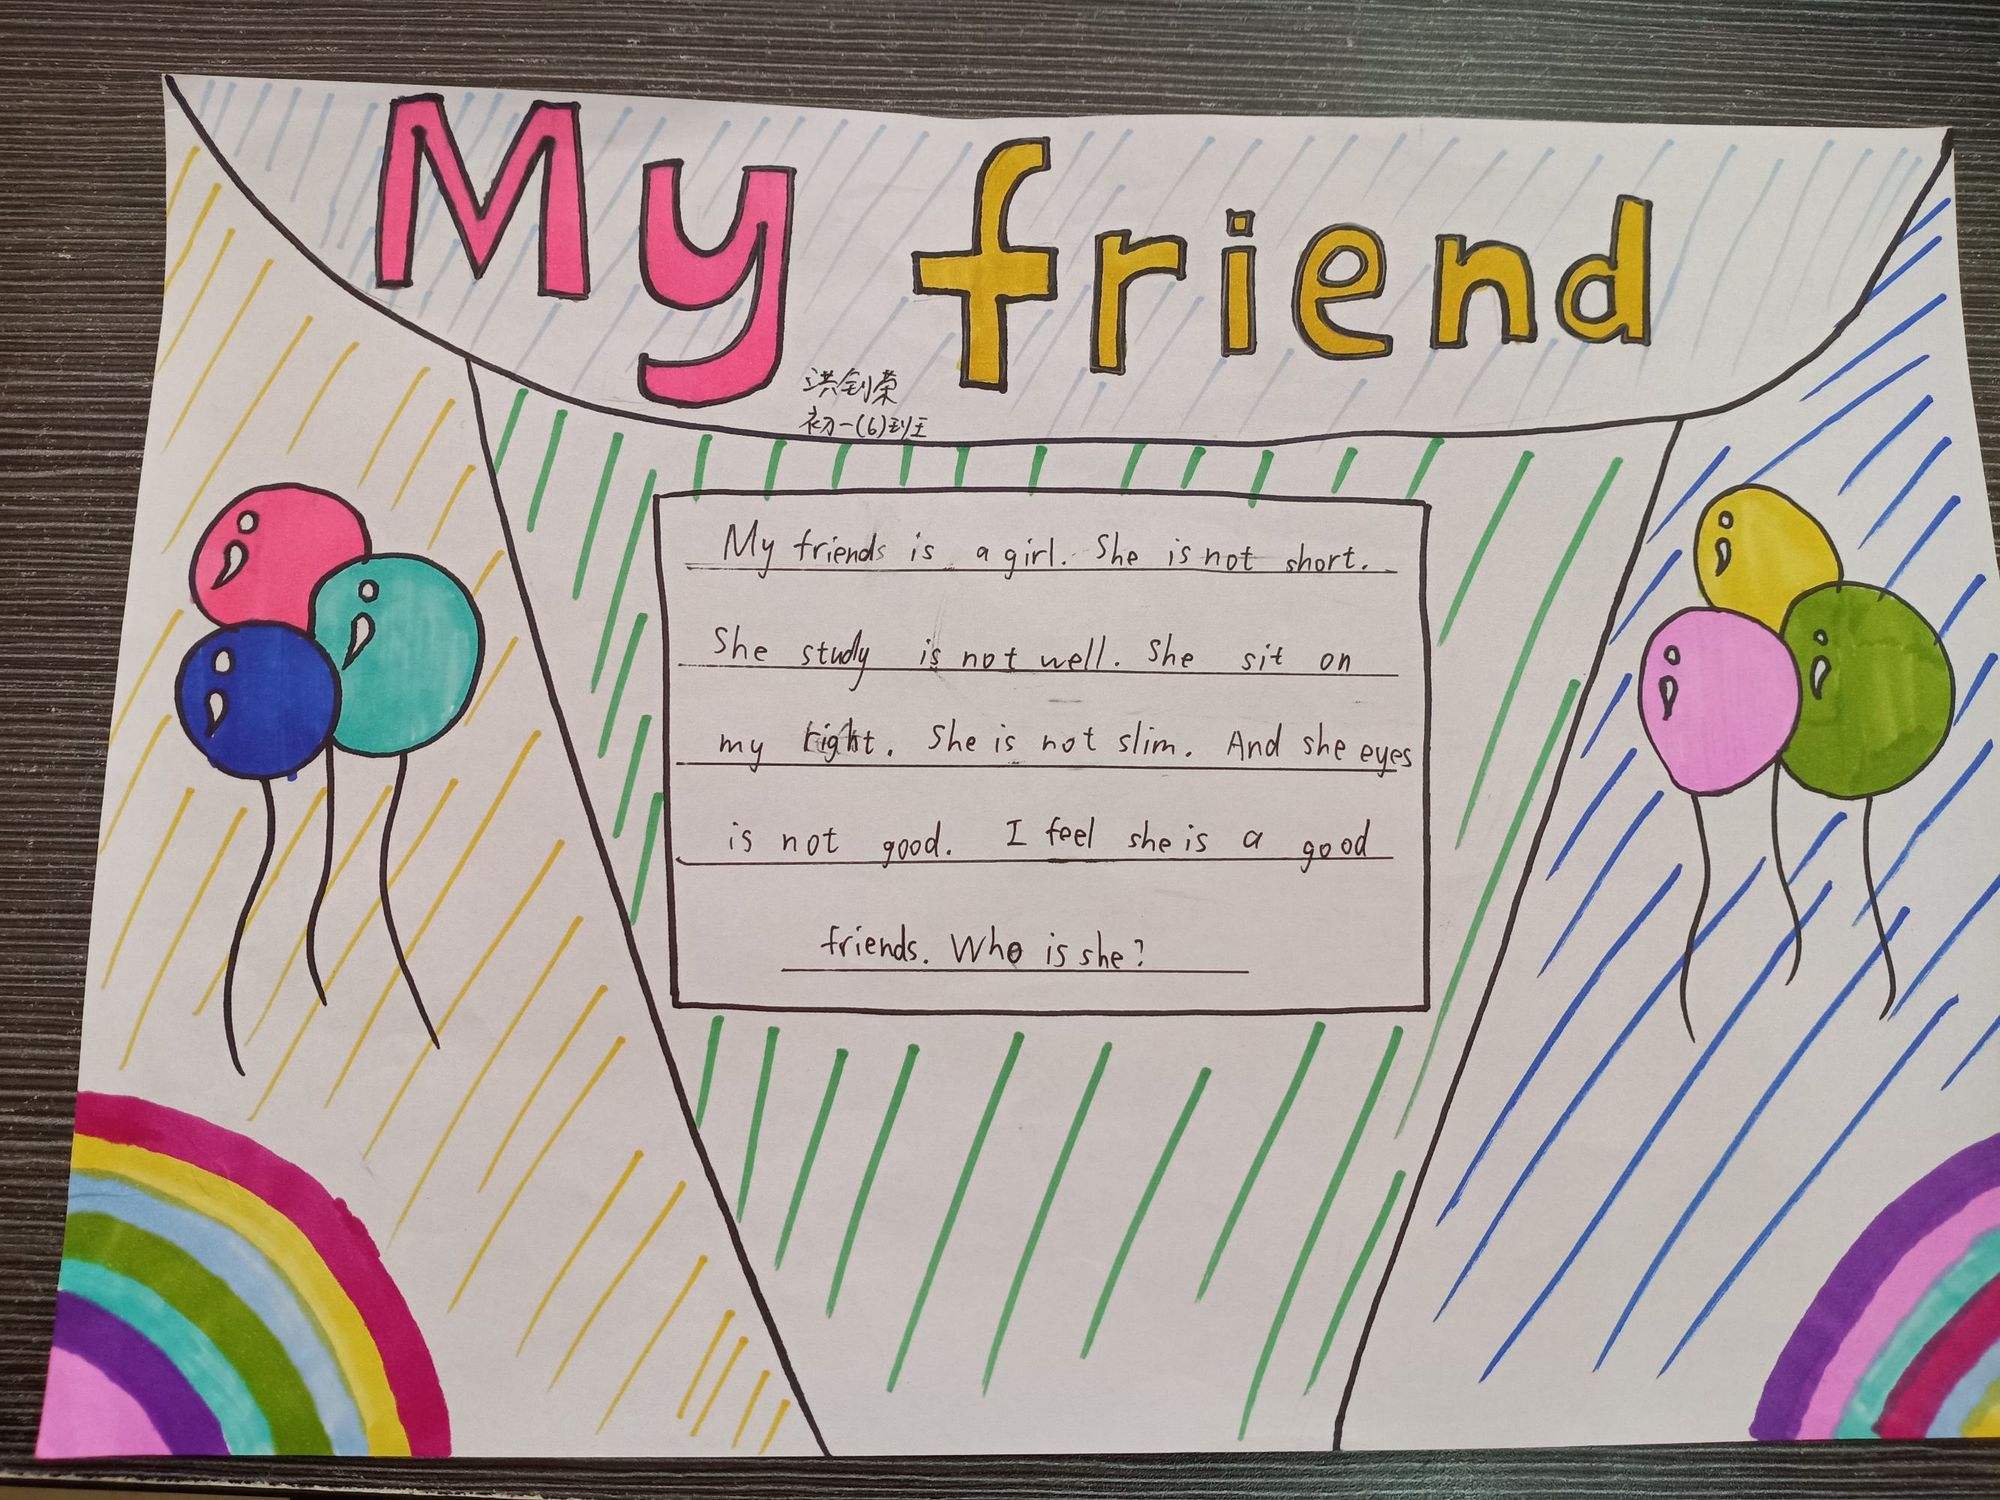 My friend
洪钊荣
初一(6)班
My friends is a girl. She is not short.
She study is not well. She sit on
my right. She is not slim. And she eyes
is not good. I feel she is a good
friends. Who is she?